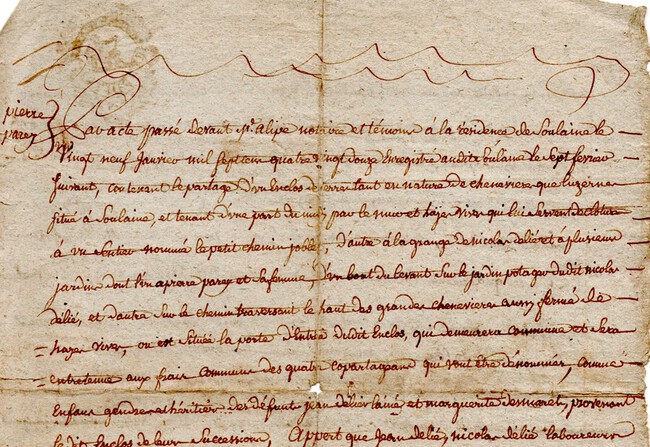 pierre
parey
Par acte passé devant Mᵉ alipe notaire et témoins à la residence de Soulaine le
Vingt neuf Janvier mil septcent quatre vingt douze Enregistré audit Soulaine le Sept fevrier
Suivant, contenant le partage d'un Enclos de terre tant en nature de cheneviere que luzerne
situé à Soulaine, et tenant d'une part du midy par le mur et hayes vives qui lui servent de cloture
à un sentier nommé le petit chemin, d'autre à la grange de nicolas delié et à plusieurs
jardins dont l'un a pierre parey et sa femme d'un bout du levant sur le jardin potager dudit nicolas
délié, et d'autre sur le chemin traversant le haut des grandes chenevieres aussy fermé de
hayes vives, ou est située la porte d'Entrée dudit Enclos, qui demeurera commune et sera
entretenue aux frais communs des quatre copartageans qui vont être dénommés, comme
Enfans gendre et héritiers des défunt jean délié lainé et marguerite desmaret, provenant
ledit Enclos de leurs successions, Appert que Jean délié, nicolas délié laboureurs